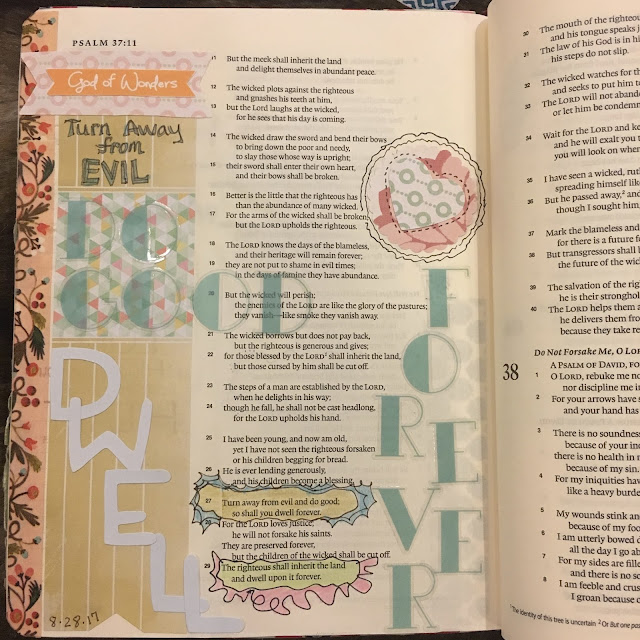 PSALM 37:11
God of Wonders
Turn Away
from
EVIL
DO
GOOD
DWELL
8·28·17
FOREVER
11 But the meek shall inherit the land
and delight themselves in abundant peace.
12 The wicked plots against the righteous
and gnashes his teeth at him,
13 but the Lord laughs at the wicked,
for he sees that his day is coming.
14 The wicked draw the sword and bend their bows
to bring down the poor and needy,
to slay those whose way is upright;
15 their sword shall enter their own heart,
and their bows shall be broken.
16 Better is the little that the righteous has
than the abundance of many wicked.
17 For the arms of the wicked shall be broken,
but the LORD upholds the righteous.
18 The LORD knows the days of the blameless,
and their heritage will remain forever;
19 they are not put to shame in evil times;
in the days of famine they have abundance.
20 But the wicked will perish;
the enemies of the LORD are like the glory of the pastures;
they vanish—like smoke they vanish away.
21 The wicked borrows but does not pay back,
but the righteous is generous and gives;
22 for those blessed by the LORD² shall inherit the land,
but those cursed by him shall be cut off.
23 The steps of a man are established by the LORD,
when he delights in his way;
24 though he fall, he shall not be cast headlong,
for the LORD upholds his hand.
25 I have been young, and now am old,
yet I have not seen the righteous forsaken
or his children begging for bread.
26 He is ever lending generously,
and his children become a blessing.
27 Turn away from evil and do good;
so shall you dwell forever.
28 For the LORD loves justice;
he will not forsake his saints.
They are preserved forever,
but the children of the wicked shall be cut off.
29 The righteous shall inherit the land
and dwell upon it forever.
30 The mouth of the righteo
and his tongue speaks j
31 The law of his God is in hi
his steps do not slip.
32 The wicked watches for th
and seeks to put him to
33 The LORD will not aband
or let him be condemn
34 Wait for the LORD and ke
and he will exalt you t
you will look on wher
35 I have seen a wicked, ruth
spreading himself lik
36 But he passed away,² and
though I sought him,
37 Mark the blameless and
for there is a future f
38 But transgressors shall l
the future of the wic
39 The salvation of the rig
he is their strongho
40 The LORD helps them a
he delivers them fro
because they take re
Do Not Forsake Me, O Lor
38 A PSALM OF DAVID, FO
1 O LORD, rebuke me no
nor discipline me i
2 For your arrows have s
and your hand has
3 There is no soundness
because of your in
there is no health in m
because of my sin.
4 For my iniquities hav
like a heavy burde
5 My wounds stink an
because of my foo
6 I am utterly bowed d
all the day I go ab
7 For my sides are fille
and there is no so
8 I am feeble and crus
I groan because o
¹ The identity of this tree is uncertain ² Or But one pas